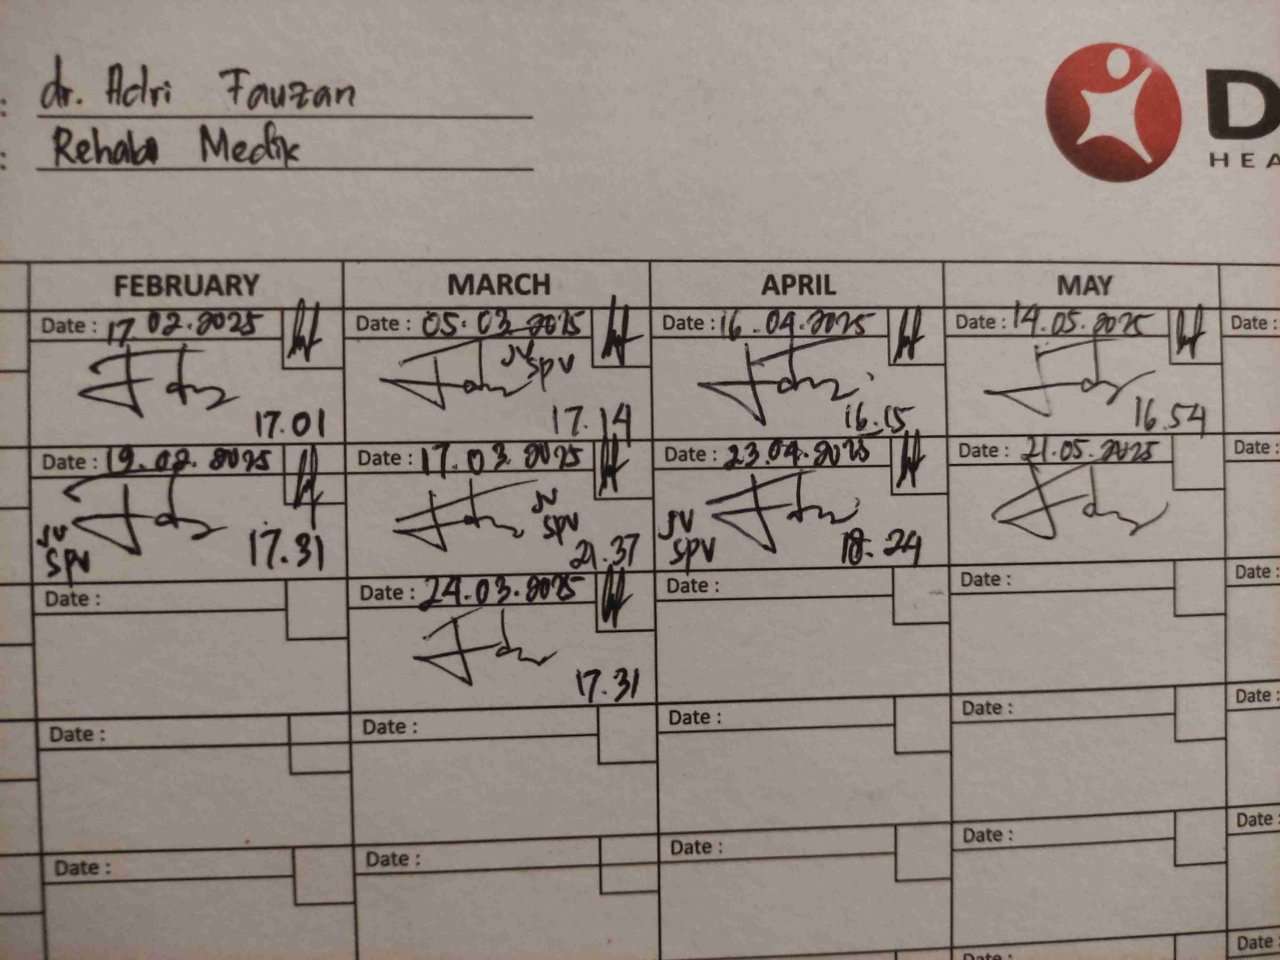 : dr. Adri Fauzan
: Rehab Medik
D
HEA
FEBRUARY MARCH APRIL MAY
Date : 17.02.2025 Date : 05.03.2025 Date : 16.04.2025 Date : 14.05.2025 Date :
JV
SPV
17.01 17.14 16.15 16.54
Date : 19.02.2025 Date : 17.03.2025 Date : 23.04.2025 Date : 21.05.2025 Date :
JV JV JV
SPV SPV SPV
17.31 21.37 18.24
Date : Date : 24.03.2025 Date : Date : Date :
17.31
Date : Date : Date : Date : Date :
Date : Date : Date : Date : Date :
Date : Date :